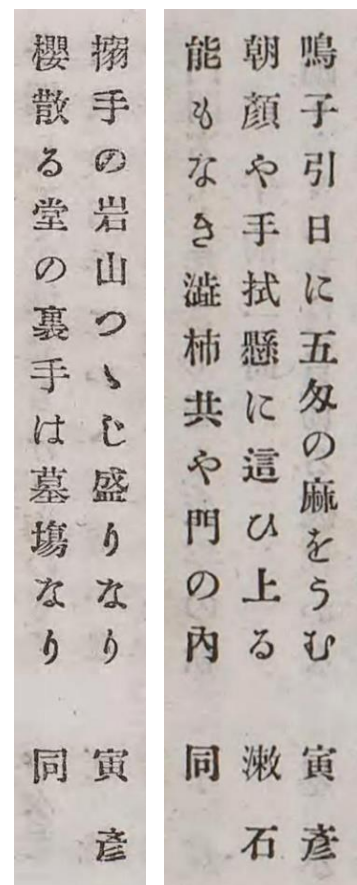 鳴子引日に五匁の麻をうむ　寅彥
朝顏や手拭懸に這ひ上る　漱石
能もなき澁柿共や門の內　同
搦手の岩山つゝじ盛りなり　寅彥
櫻散る堂の裏手は墓塲なり　同